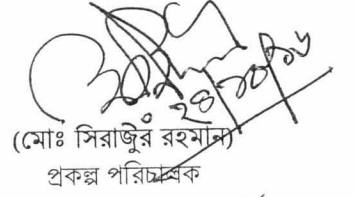 (মোঃ সিরাজুর রহমান)
প্রকল্প পরিচালক